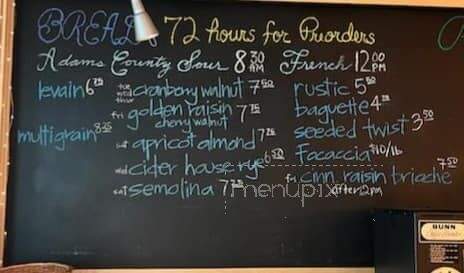 BREADS 72 hours for Preorders
Adams County Sour 8 30 AM French 12 00 PM
levain 6 75
multigrain 8 25
tue wed thur cranberry walnut 7 50
fri golden raisin 7 75
cherry walnut
sat apricot almond 7 75
wed cider house rye 6 50
sat semolina 7 75
rustic 5 50
baguette 4 25
seeded twist 3 50
Focaccia $10/lb
fri cinn. raisin brioche 7 50
after 12pm
menupix
BUNN